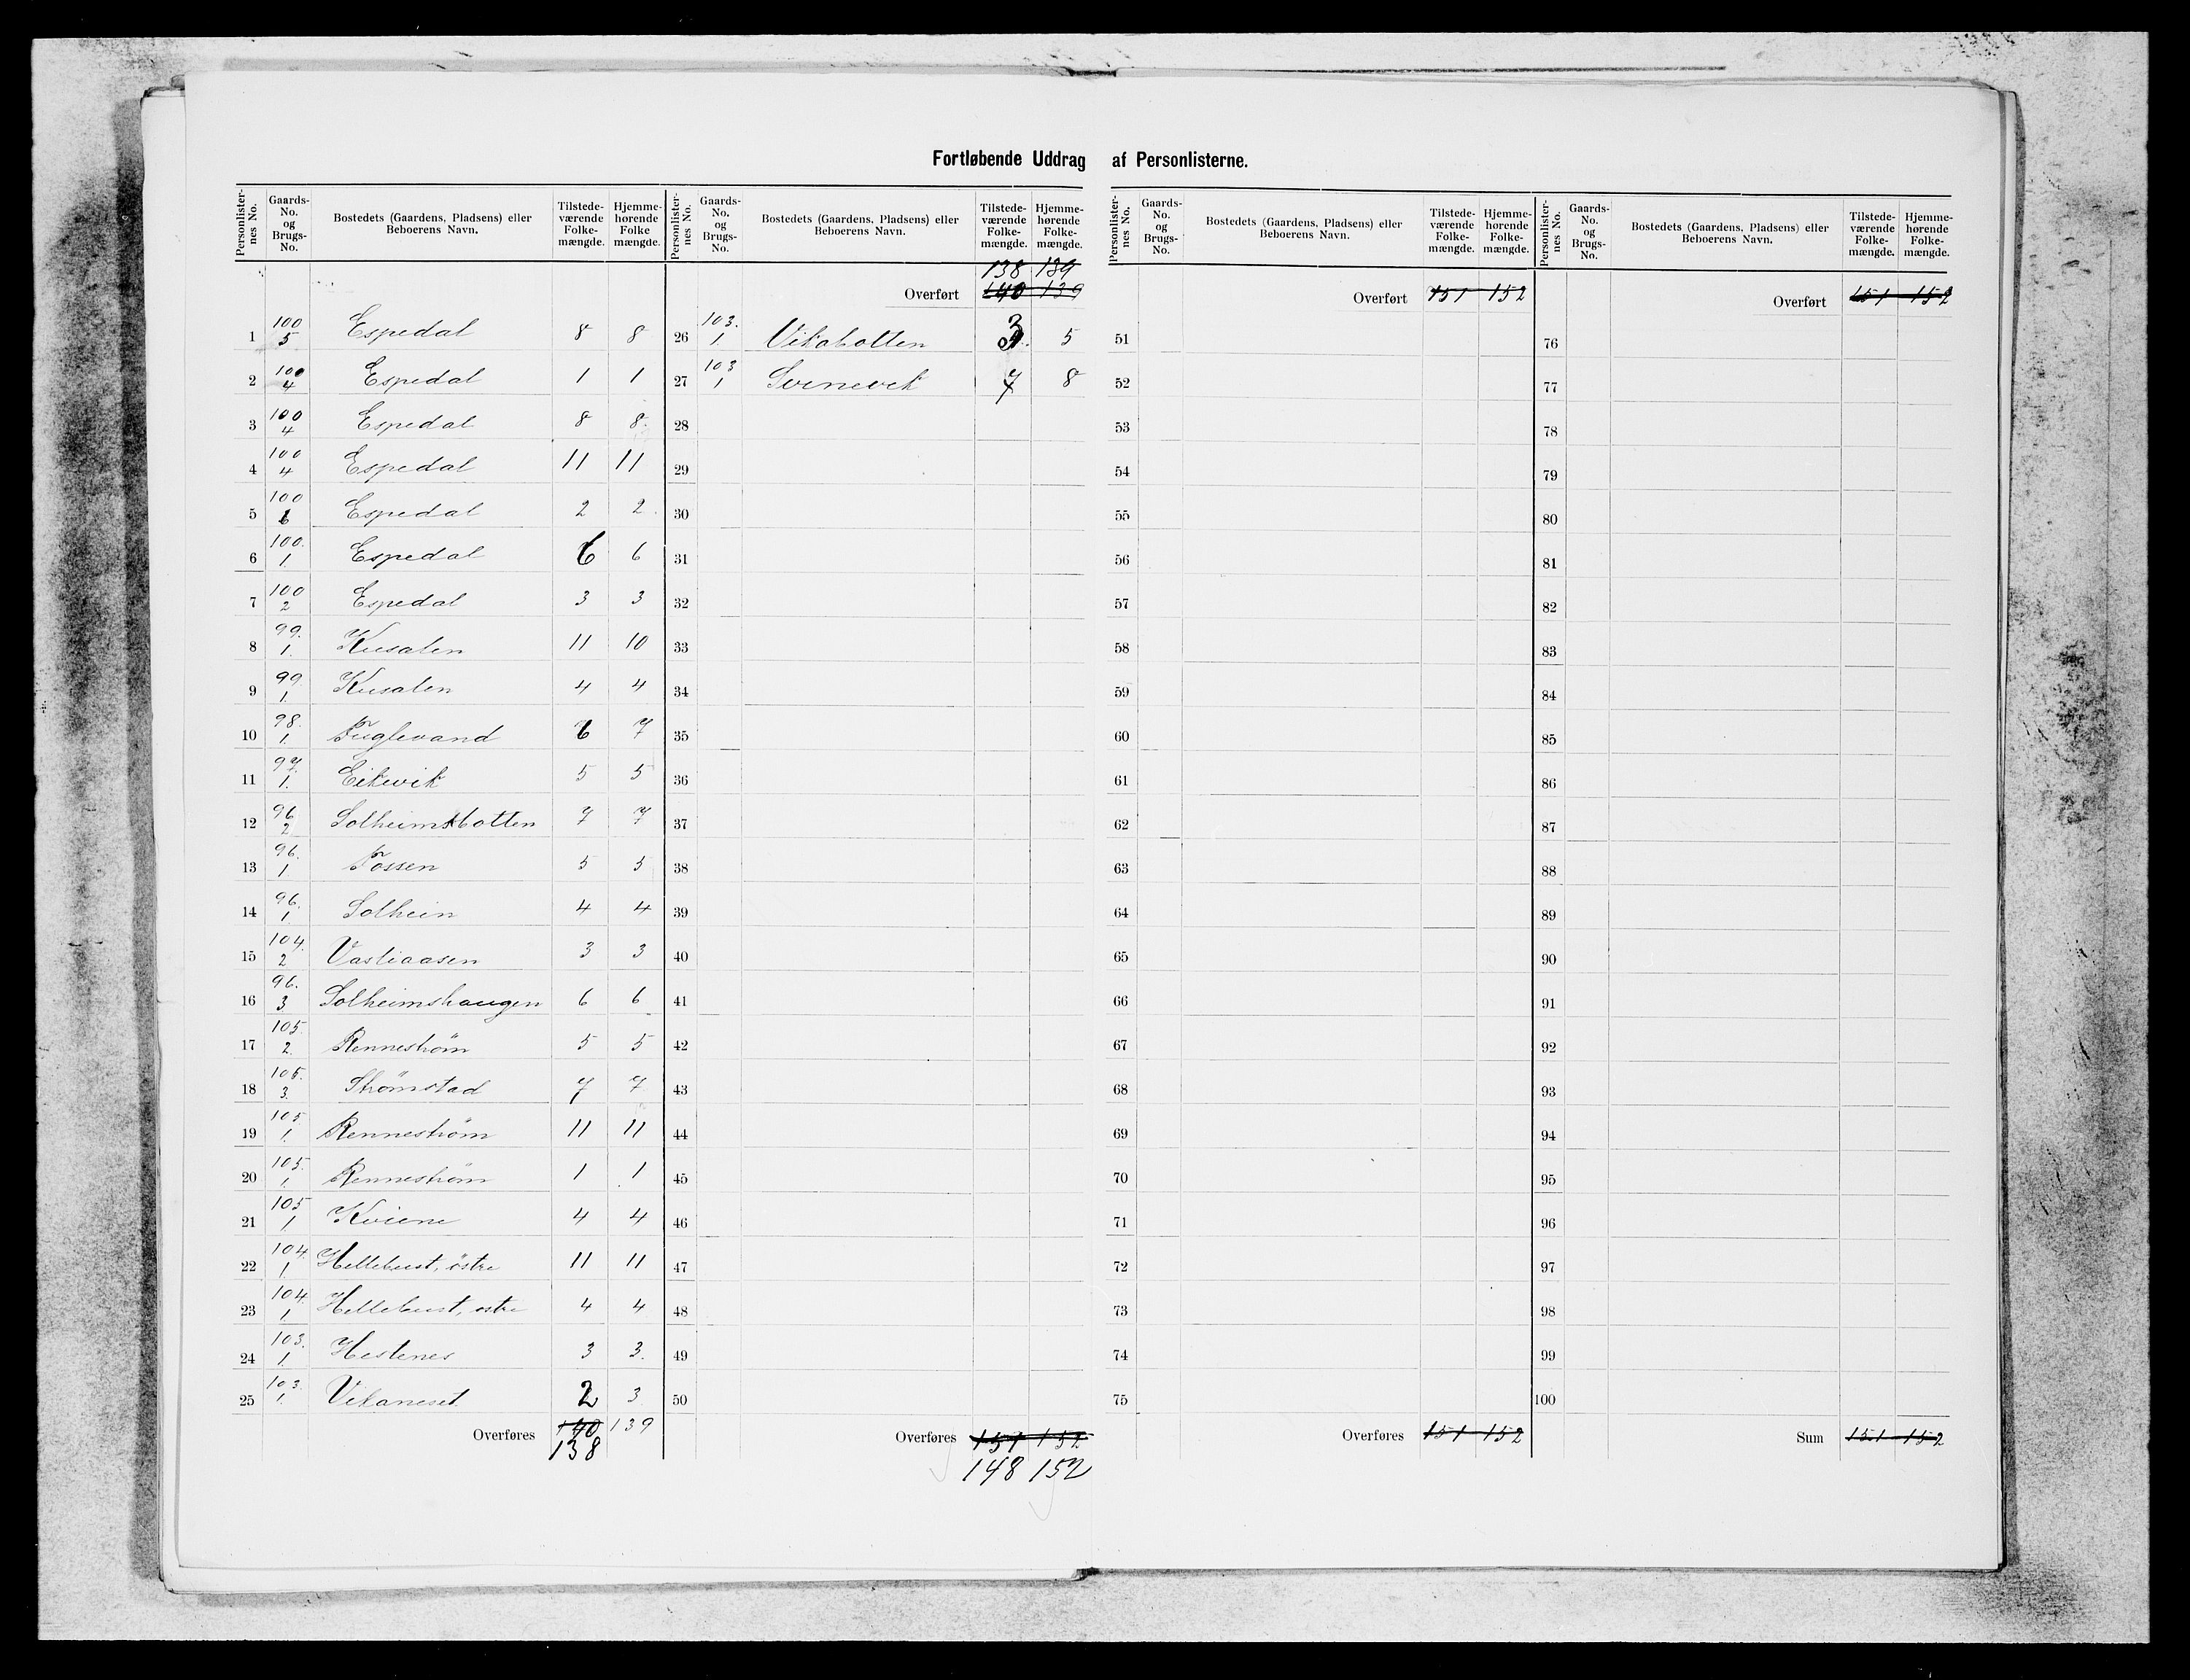 Fortløbende Uddrag af Personlisterne.
Personlister-nes No. | Gaards-No. og Brugs-No. | Bostedets (Gaardens, Pladsens) eller Beboerens Navn. | Tilstede-værende Folke-mængde. | Hjemme-hørende Folke mængde.
1 | 100 5 | Espedal | 8 | 8
2 | 100 4 | Espedal | 1 | 1
3 | 100 4 | Espedal | 8 | 8
4 | 100 4 | Espedal | 11 | 11
5 | 100 6 | Espedal | 2 | 2
6 | 100. 1 | Espedal | 6 | 6
7 | 100 2 | Espedal | 3 | 3
8 | 99. 1. | Kusalen | 11 | 10
9 | 99. 1. | Kusalen | 4 | 4
10 | 98. 1. | Fuglevand | 6 | 7
11 | 97. 1. | Eikevik | 5 | 5
12 | 96 2 | Solheimsbotten | 7 | 7
13 | 96. 1 | Fossen | 5 | 5
14 | 96. 1 | Solheim | 4 | 4
15 | 104. 2 | Vasliaasen | 3 | 3
16 | 96. 3 | Solheimshaugen | 6 | 6
17 | 105. 2. | Renneström | 5 | 5
18 | 105. 3. | Strömstad | 7 | 7
19 | 105. 1. | Renneström | 11 | 11
20 | 105. 1. | Renneström | 1 | 1
21 | 105 1 | Kviene | 4 | 4
22 | 104. 1. | Hellebust, östre | 11 | 11
23 | 104. 1 | Hellebust, östre | 4 | 4
24 | 103. 1. | Heslenes | 3 | 3.
25 | 103. 1. | Vikaneset | 2 | 3
Overføres | 140 | 139
138
Personlister-nes No. | Gaards-No. og Brugs-No. | Bostedets (Gaardens, Pladsens) eller Beboerens Navn. | Tilstede-værende Folke-mængde. | Hjemme-hørende Folke-mængde.
138 | 139
Overført | 140 | 139
26 | 103. 1. | Vikabotten | 3 | 5
27 | 103 1 | Svinevik | 7 | 8
28
29
30
31
32
33
34
35
36
37
38
39
40
41
42
43
44
45
46
47
48
49
50
Overføres | 151 | 152
148 | 152
Personlister-nes No. | Gaards-No. og Brugs-No. | Bostedets (Gaardens, Pladsens) eller Beboerens Navn. | Tilstede-værende Folke-mængde. | Hjemme-hørende Folke-mængde.
Overført | 151 | 152
51
52
53
54
55
56
57
58
59
60
61
62
63
64
65
66
67
68
69
70
71
72
73
74
75
Overføres | 151 | 152
Personlister-nes No. | Gaards-No. og Brugs-No. | Bostedets (Gaardens, Pladsens) eller Beboerens Navn. | Tilstede-værende Folke-mængde. | Hjemme-hørende Folke-mængde.
Overført | 151 | 152
76
77
78
79
80
81
82
83
84
85
86
87
88
89
90
91
92
93
94
95
96
97
98
99
100
Sum | 151 | 152